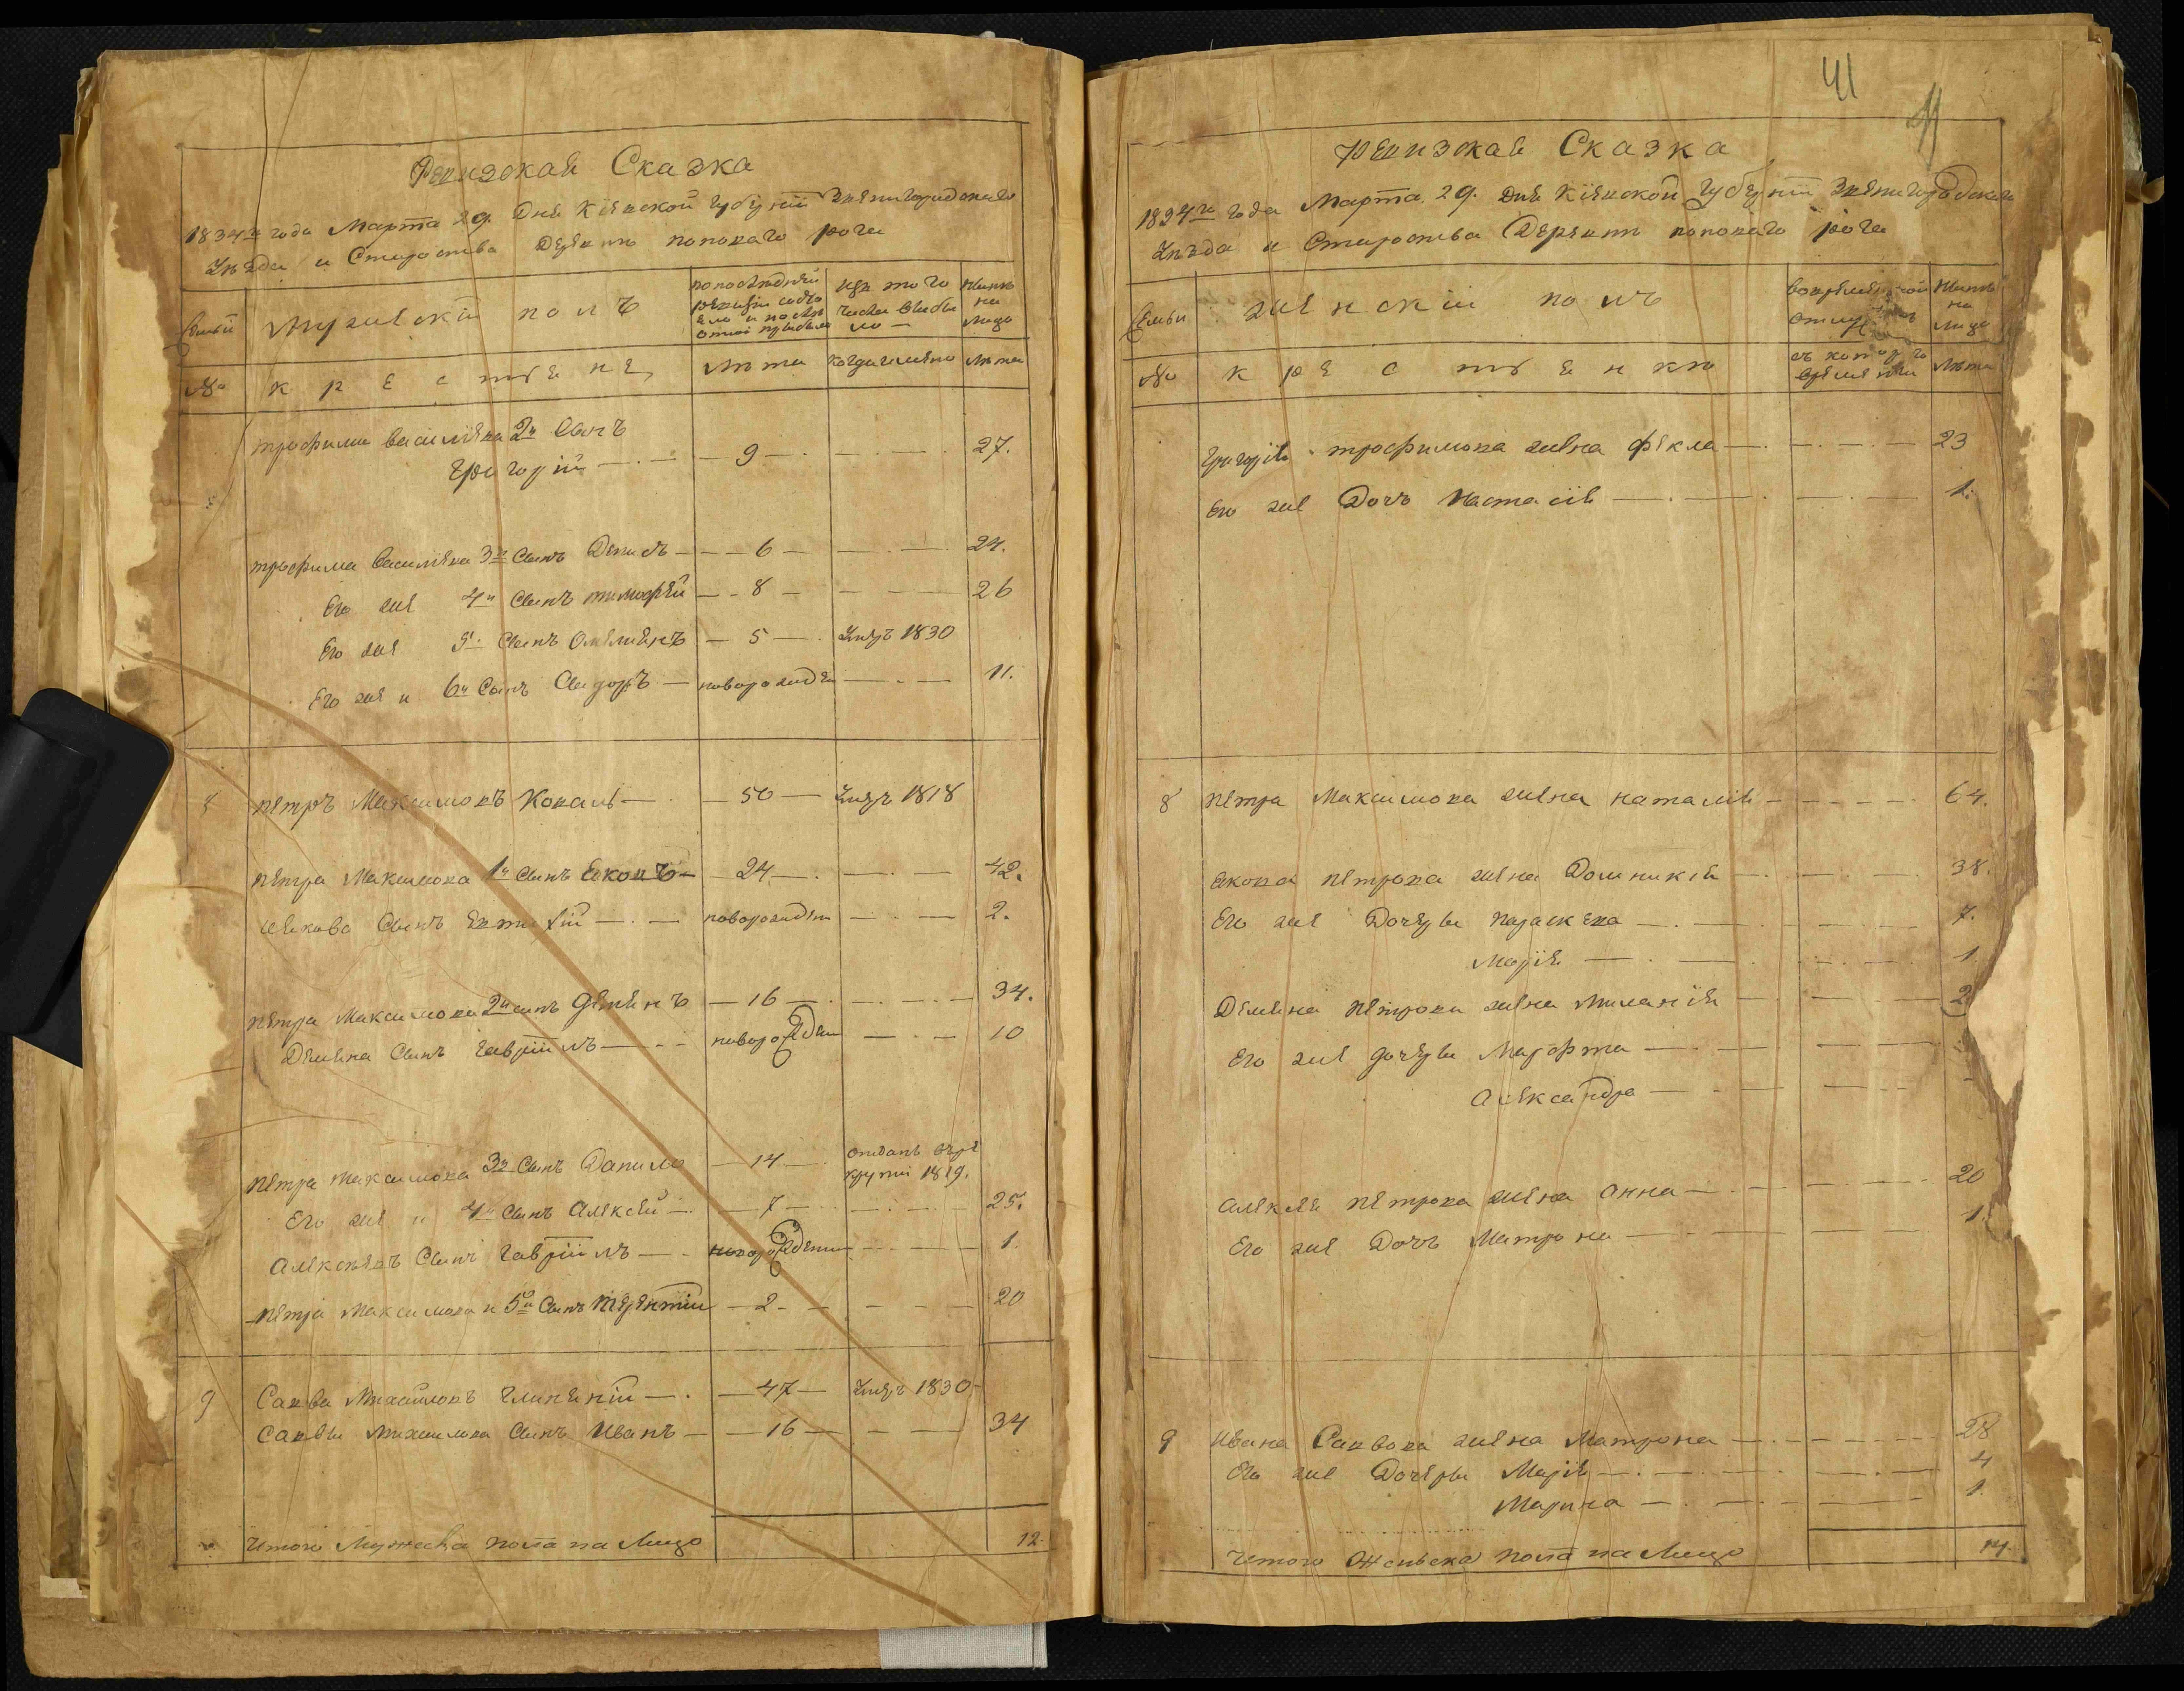 Ревизская Сказка
1834го года Марта 29. Дня Кіевской Губерніи Звенигородскаго
Уѣзда и Староства Деревни поповаго рога
Семьи
мужескій полъ
по последней ревизіи состояло и после оной прибыло
изъ того числа выбыло
Нынѣ на лицо
№
крестяне
лѣта
когда именно
лѣта
трофима василіева 2й Сынъ
Григорій — 9 — 27.
трофима василіева 3й Сынъ Денисъ — 6 — 24.
Его же 4й Сынъ тимофѣй — 8 — 26
Его же 5й Сынъ Омелиянъ — 5 — Умеръ 1830
Его же и 6й Сынъ Сидоръ — новорожден — 11.
8 петръ Максимовъ Коваль — 50 — Умеръ 1818
петра Максимова 1й Сынъ Яковъ — 24 — 42.
Сынъ — новорожден — 2.
петра Максимова 2й сынъ Демянъ — 16 — 34.
Демяна Сынъ Гавріилъ — новорожден — 10
петра максимова 3й Сынъ Данило — 14 — отданъ в рекрути 1819.
Его же и 4й Сынъ Алексѣй — 7 — 25.
Алексѣевъ Сынъ Гавріилъ — новорожден — 1.
петра Максимова и 5й Сынъ терентій — 2 — 20
9 Савва Михайловъ — 47 — Умеръ 1830
Саввы михаилова Сынъ Иванъ — 16 — 34
Итого Мужеска пола на Лицо 12.
41
Ревизская Сказка
1834го года Марта 29. Дня Кіевской Губерніи Звенигородскаго
Уѣзда и Староства Деревни поповаго рога
Семьи
женскій полъ
во временной отлучке
Нынѣ на лицо
№
крестянки
съ которого времени
лѣта
Григорія трофимова жена фекла — 23
Его же Дочъ Настасія — 1.
8 петра Максимова жена наталія — 64.
Якова петрова жена Домникія — 38.
Его же Дочеры параскева — 7.
Марія — 1
Демяна петрова жена Миланія — 2
Его же дочеры Марфта —
Александра —
Алексѣя петрова жена Анна — 20
Его же Дочъ Матрона — 1.
9 Ивана Саввова жена Матрона — 28
Его же Дочеры Марія — 4
Марина — 1.
Итого Женьска пола на Лицо 14.